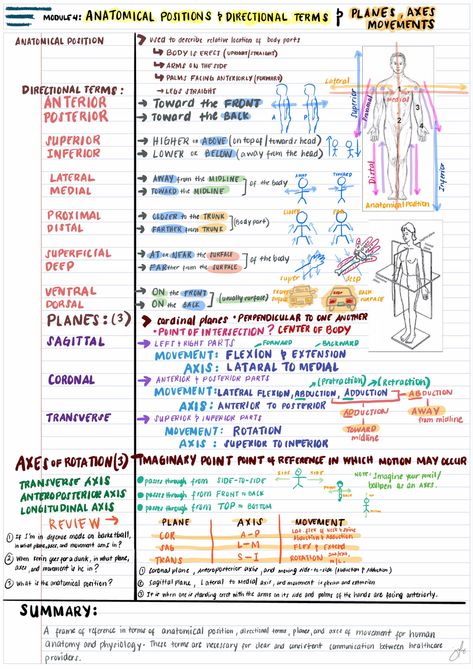 MODULE 4: ANATOMICAL POSITIONS & DIRECTIONAL TERMS & PLANES, AXES MOVEMENTS
ANATOMICAL POSITION
used to describe relative location of body parts
BODY IS ERECT (UPRIGHT/STRAIGHT)
ARMS ON THE SIDE
PALMS FACING ANTERIORLY (FORWARD)
LEGS STRAIGHT
DIRECTIONAL TERMS:
ANTERIOR → Toward the FRONT
POSTERIOR → Toward the BACK
A P
SUPERIOR → HIGHER or ABOVE (on top of/towards head)
INFERIOR → LOWER or BELOW (away from the head)
LATERAL → AWAY from the MIDLINE
MEDIAL → TOWARD the MIDLINE
of the body
AWAY TOWARD
PROXIMAL → CLOZER to the TRUNK
DISTAL → FARTHER from TRUNK
(Body part)
SUPERFICIAL → AT or NEAR the SURFACE
DEEP → FARther from the SURFACE
of the body
super DEEP
VENTRAL → ON the FRONT
DORSAL → ON the BACK
(usually surface)
BACK SURFACE
Lateral
Medial
Superior
Proximal
Distal
Inferior
1
2
3
4
Anatomical Position
PLANES: (3)
cardinal planes • PERPENDICULAR TO ONE ANOTHER
• POINT OF INTERSECTION? CENTER OF BODY
SAGITTAL → LEFT & RIGHT PARTS
FORWARD BACKWARD
MOVEMENT: FLEXION & EXTENSION
AXIS: LATARAL TO MEDIAL
CORONAL → ANTERIOR & POSTERIOR PARTS
(Protraction) (Retraction)
MOVEMENT: LATERAL FLEXION, ABDUCTION, ADDUCTION
AXIS: ANTERIOR TO POSTERIOR
ABDUCTION
AWAY from midline
ADDUCTION
TOWARD midline
TRANSVERSE → SUPERIOR & INFERIOR PARTS
MOVEMENT: ROTATION
AXIS: SUPERIOR TO INFERIOR
AXES OF ROTATION (3) - IMAGINARY POINT POINT OF REFERENCE IN WHICH MOTION MAY OCCUR
TRANSVERSE AXIS passes through from SIDE-TO-SIDE
ANTEROPOSTERIOR AXIS passes through from FRONT to BACK
LONGITUDINAL AXIS passes through from TOP to BOTTOM
SIDE SIDE
NOTE: Imagine your pencil/ ballpen as an AXES.
REVIEW
PLANE AXIS MOVEMENT
COR A-P
Abduction & Adduction
SAG L-M FLEX & EXTEND
TRANS S-I ROTATION
① If I'm in defense mode on basketball, in what plane, axes, and movement am I in?
② When Erwin goes for a dunk, in what plane, axes, and movement is he in?
③ What is the anatomical position?
① Coronal plane, anteroposterior axis, and moving side-to-side (abduction & adduction)
② Sagittal plane, Lateral to medial axis, and movement is flexion and extension
③ It is when one is standing erect with the arms on its side and palms of the hands are facing anteriorly.
SUMMARY:
A frame of reference in terms of anatomical position, directional terms, planes, and axes of movement for human
anatomy and physiology. These terms are necessary for clear and consistent communication between healthcare
providers.